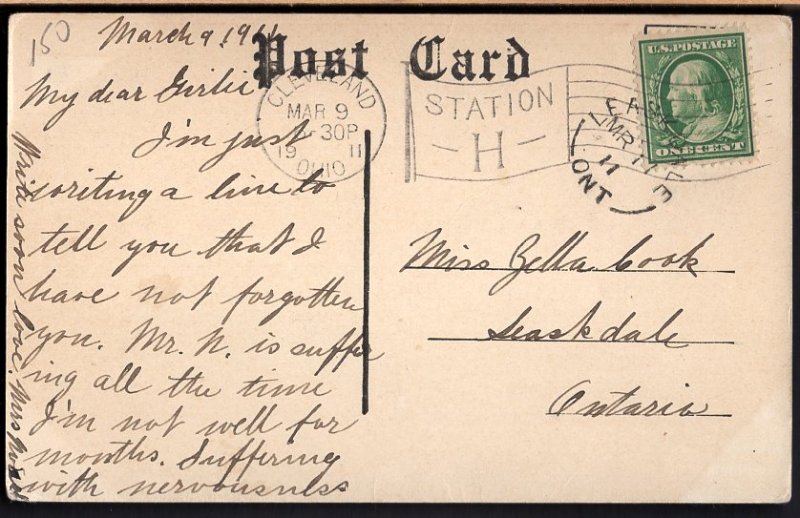 150
March 9, 1911
Post Card
My dear Girlie
I'm just
writing a line to
tell you that I
have not forgotten
you. Mr. N. is suffer
ing all the time
I'm not well for
months. Suffering
with nervousness
Write soon love. Mrs
CLEVELAND
MAR 9
-30P
19 11
OHIO
STATION
H
MR
11
ONT
U.S. POSTAGE
ONE CENT
Miss Zella Cook
Leaskdale
Ontario